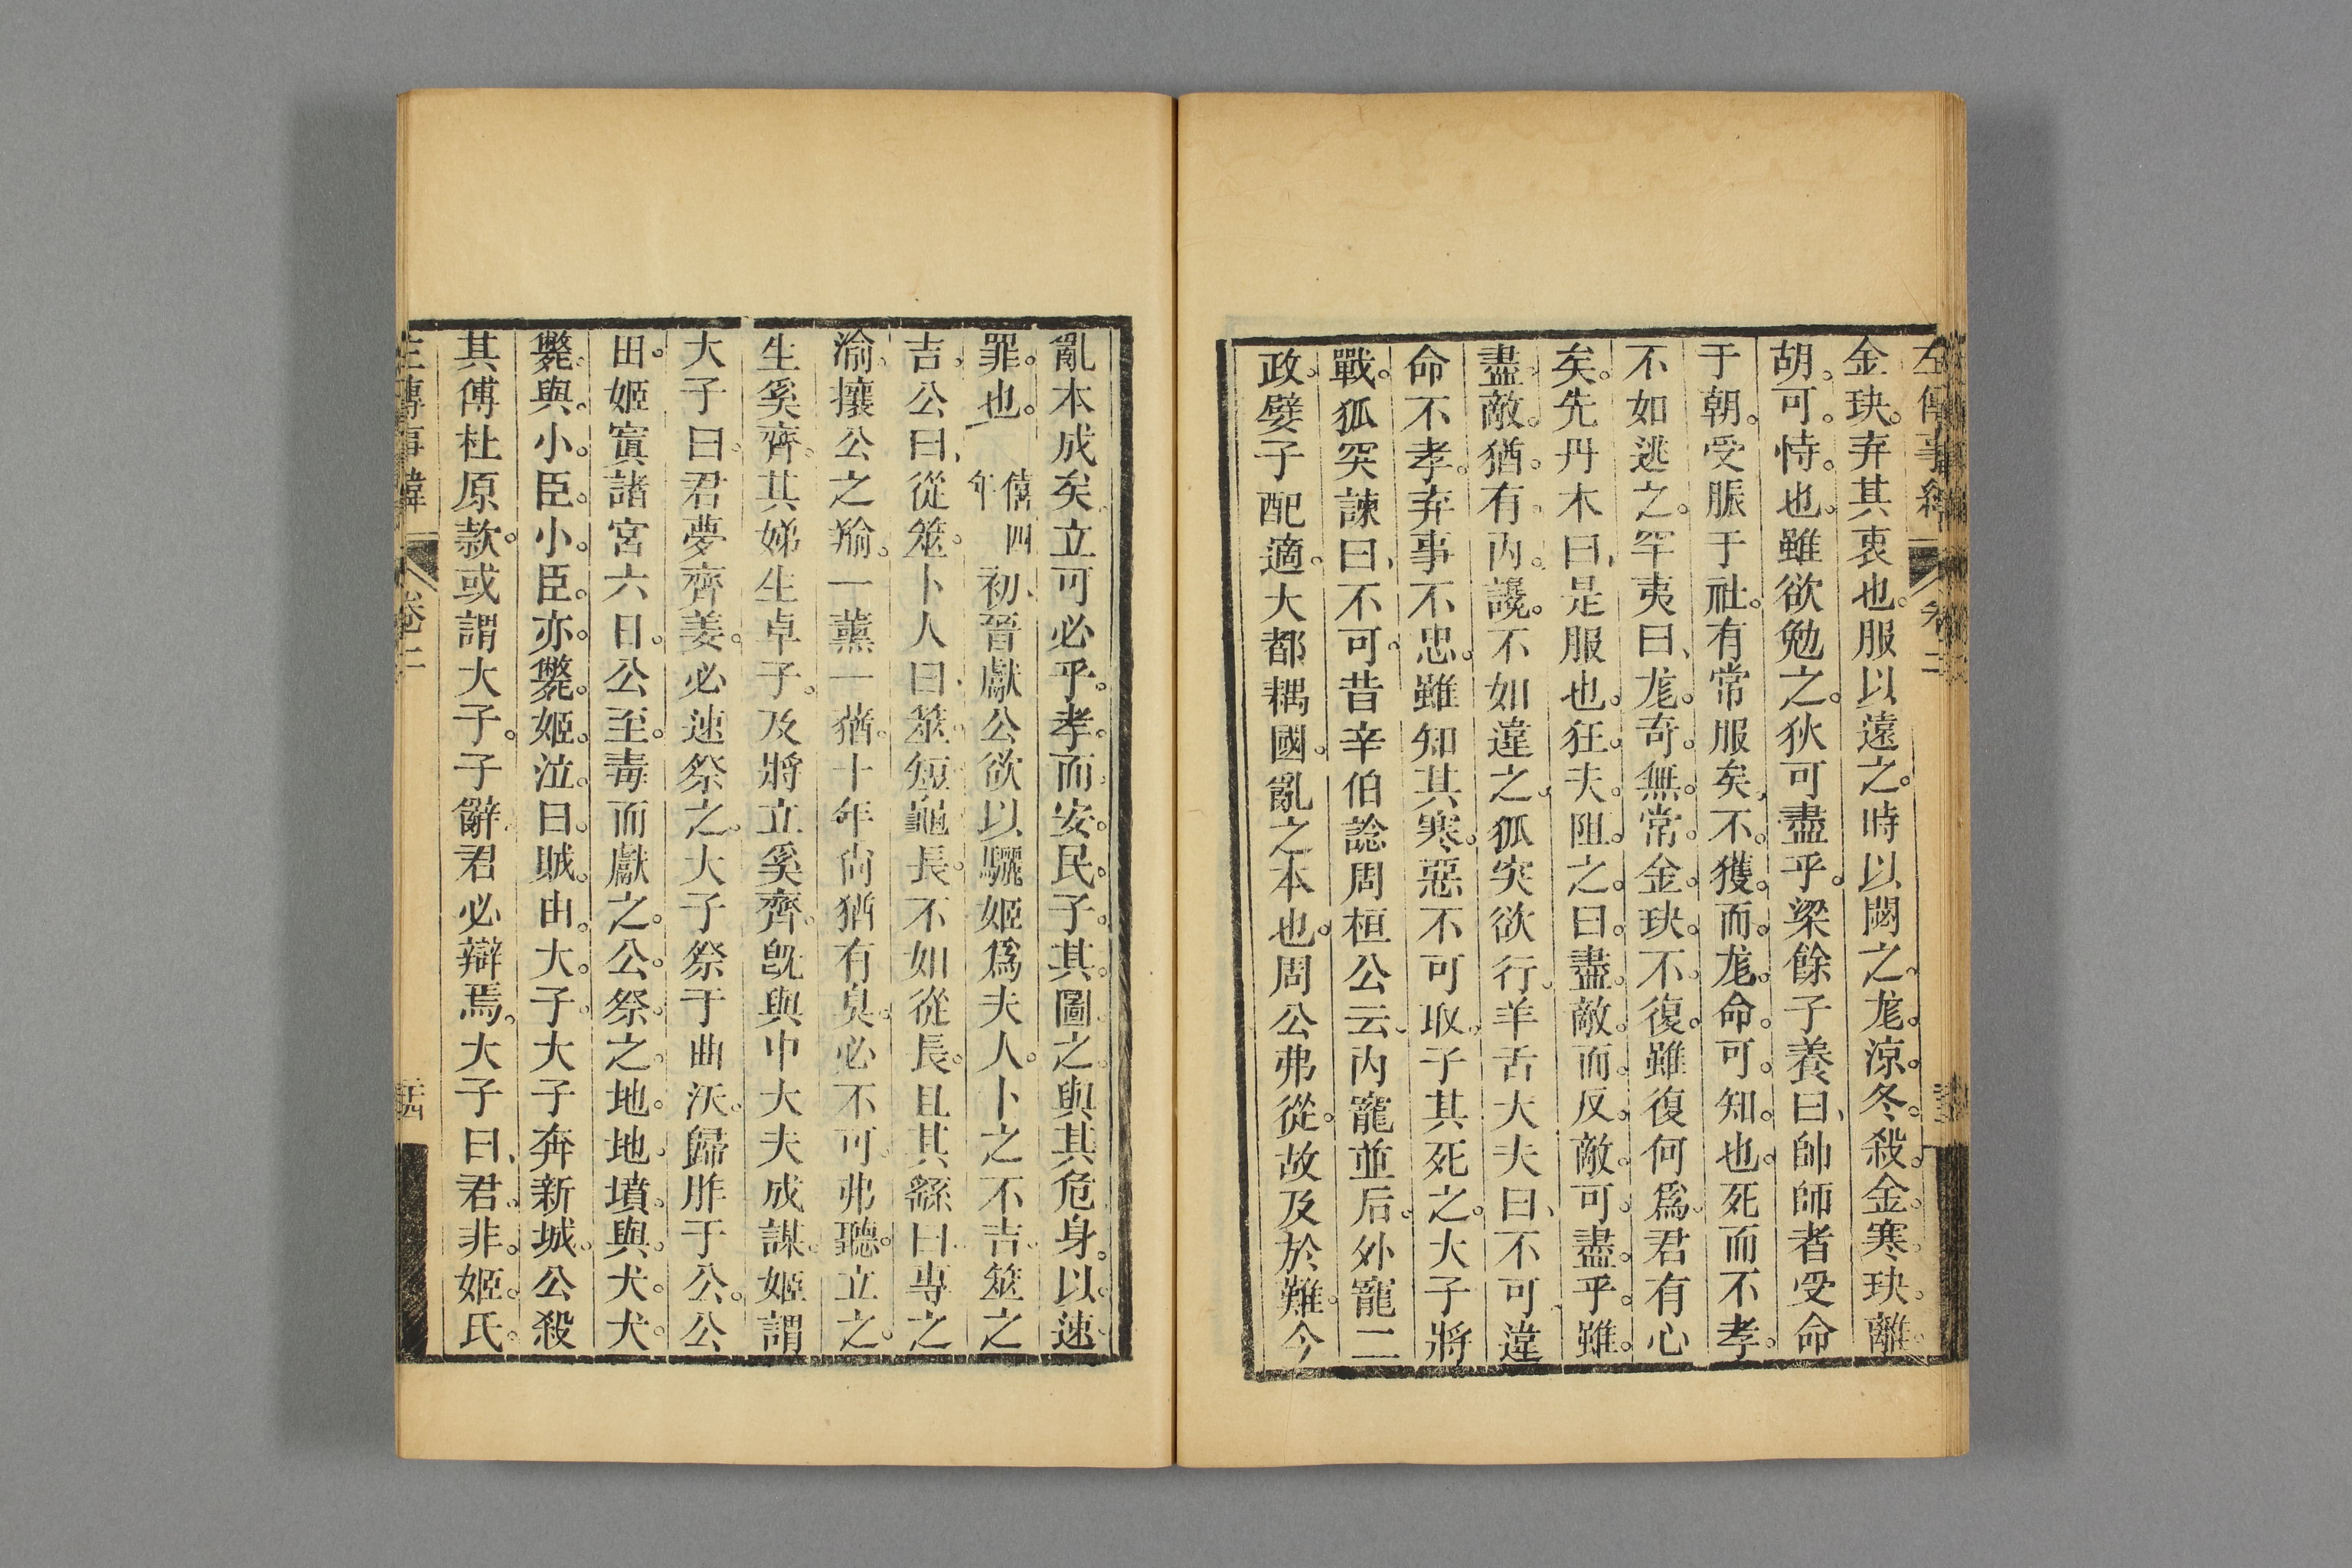 金玦弃其衷也服以遠之時以閟之尨涼冬殺金寒玦離
胡可恃也雖欲勉之狄可盡乎梁餘子養曰帥師者受命
于朝受脤于社有常服矣不獲而尨命可知也死而不孝
不如逃之罕夷曰尨奇無常金玦不復雖復何爲君有心
矣先丹木曰是服也狂夫阻之曰盡敵而反敵可盡乎雖
盡敵猶有內讒不如違之狐突欲行羊舌大夫曰不可違
命不孝弃事不忠雖知其寒惡不可取子其死之大子將
戰狐突諫曰不可昔辛伯諗周桓公云內寵並后外寵二
政嬖子配適大都耦國亂之本也周公弗從故及於難今
亂本成矣立可必乎孝而安民子其圖之與其危身以速
罪也 僖四年 初晉獻公欲以驪姬爲夫人卜之不吉筮之
吉公曰從筮卜人曰筮短龜長不如從長且其繇曰專之
渝攘公之羭一薰一蕕十年尙猶有臭必不可弗聽立之
生奚齊其娣生卓子及將立奚齊旣與中大夫成謀姬謂
大子曰君夢齊姜必速祭之大子祭于曲沃歸胙于公公
田姬寘諸宮六日公至毒而獻之公祭之地地墳與犬犬
斃與小臣小臣亦斃姬泣曰賊由大子大子奔新城公殺
其傅杜原款或謂大子子辭君必辯焉大子曰君非姬氏
左傳事緯 卷二